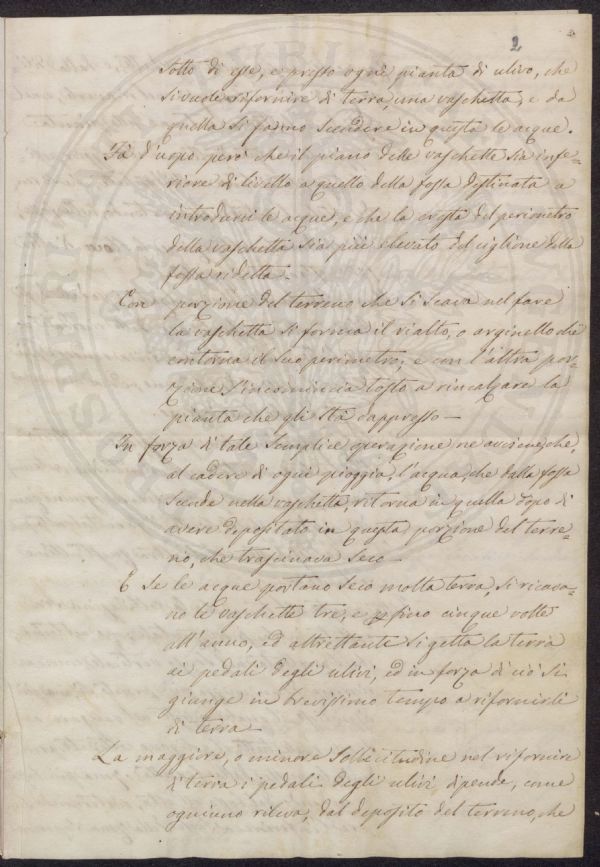 2
sotto di esse, e presso ogni pianta di ulivo, che
si vuole rifornire di terra, una vaschetta, e da
quella si fanno scendere in questa le acque.
Fa d'uopo però che il piano delle vaschette sia infe-
riore di livello a quello della fossa destinata a
introdurvi le acque, e che la cresta del perimetro
della vaschetta sia più elevato del ciglione della
fossa ridetta.
Con porzione del terreno che si scava nel fare
la vaschetta si forma il rialto, o arginello che
contorna il suo perimetro; e con l'altra por-
zione s'incomincia tosto a rincalzare la
pianta che gli sta dappresso —
In forza di tale semplice operazione ne avviene che,
al cadere di ogni pioggia, l'acqua, che dalla fossa
scende nella vaschetta, ritorna in quella dopo di
avere depositato in questa porzione del terre-
no, che trascinava seco —
E se le acque portano seco molta terra, si ricava-
no le vaschette tre, e fino cinque volte
all'anno, ed altrettante si getta la terra
ai pedali degli ulivi, ed in forza di ciò si
giunge in brevissimo tempo a rifornirli
di terra —
La maggiore, o minore sollecitudine nel rifornire
di terra i pedali degli ulivi, dipende, come
ognuno rileva, dal deposito del terreno, che